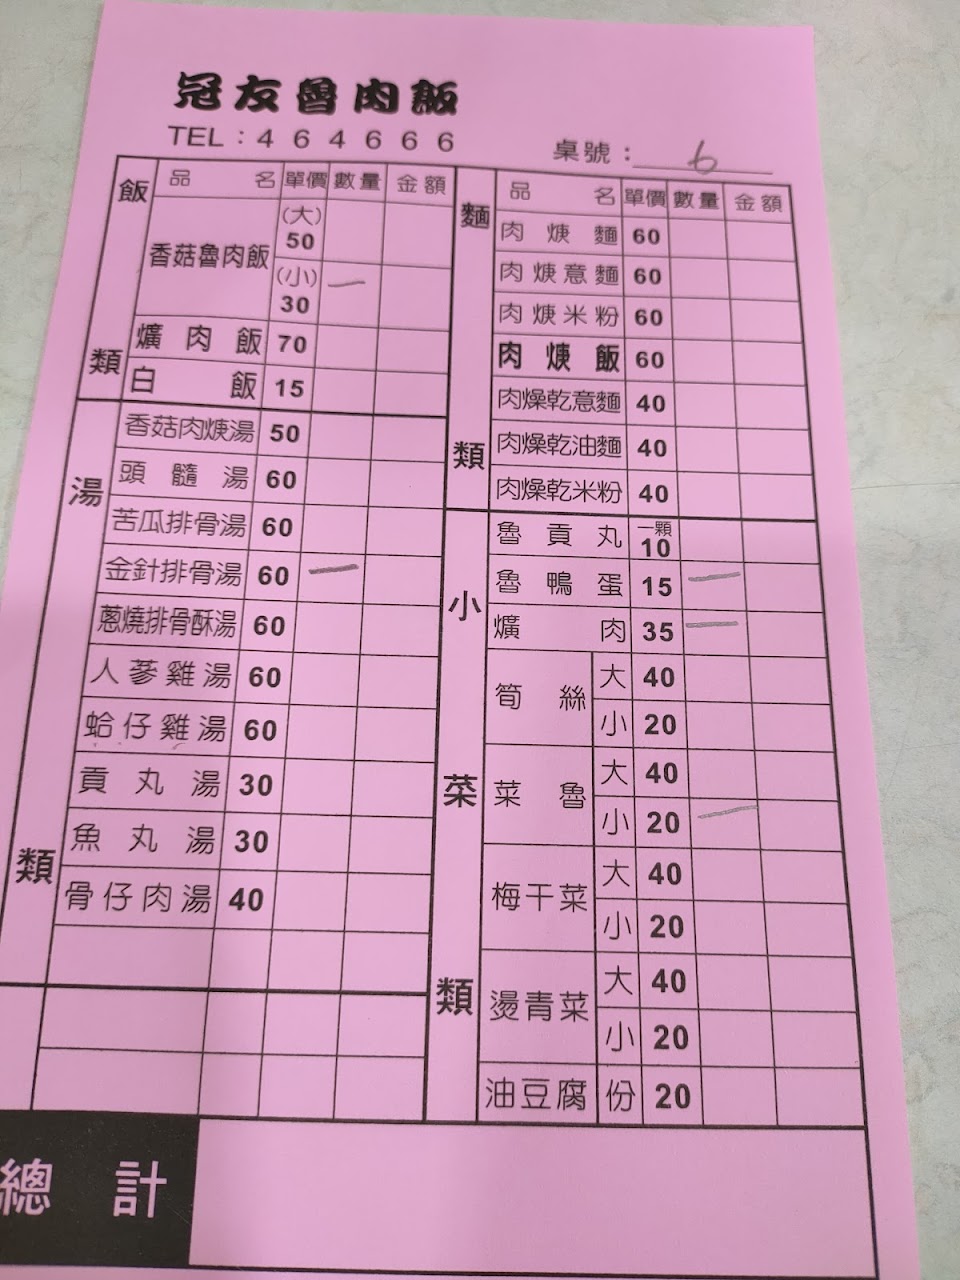 冠友魯肉飯
TEL：464666
桌號：6
飯類
品名 單價 數量 金額
香菇魯肉飯 (大) 50
(小) 30 一
爌肉飯 70
白飯 15
湯類
香菇肉焿湯 50
頭髓湯 60
苦瓜排骨湯 60
金針排骨湯 60 一
蔥燒排骨酥湯 60
人蔘雞湯 60
蛤仔雞湯 60
貢丸湯 30
魚丸湯 30
骨仔肉湯 40
麵類
品名 單價 數量 金額
肉焿麵 60
肉焿意麵 60
肉焿米粉 60
肉焿飯 60
肉燥乾意麵 40
肉燥乾油麵 40
肉燥乾米粉 40
小菜類
魯貢丸 一顆 10
魯鴨蛋 15 一
爌肉 35 一
筍絲 大 40
小 20
菜魯 大 40
小 20 一
梅干菜 大 40
小 20
燙青菜 大 40
小 20
油豆腐 份 20
總計